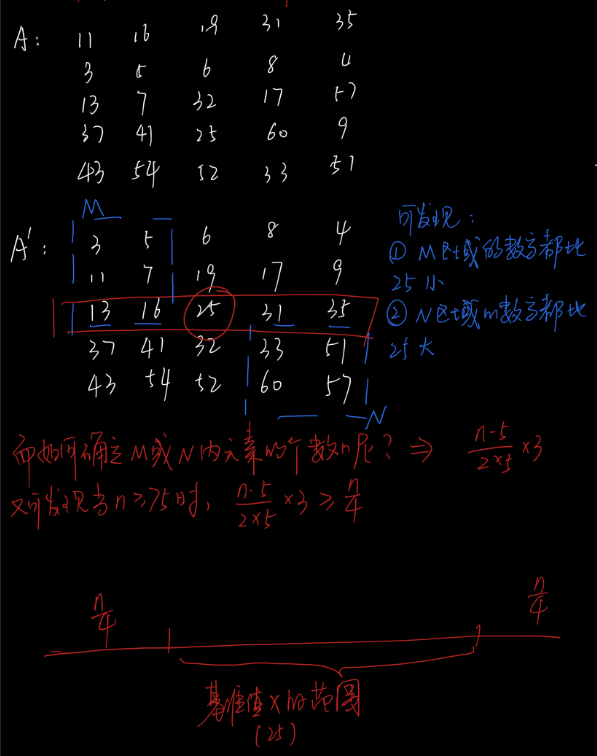 A: 11 16 19 31 35
3 5 6 8 4
13 7 32 17 57
37 41 25 60 9
43 54 52 33 51
M
A': 3 5 6 8 4
11 7 19 17 9
13 16 25 31 35
37 41 32 33 51
43 54 52 60 57
N
可发现:
① M区域的数字都比
25 小
② N区域的数字都比
25 大
而如何确定M或N内元素的个数n呢? ⇒ n-5/2×5 ×3
又可发现当n≥75时, n-5/2×5 ×3 ≥ n/4
n/4 n/4
基准值x的范围
(25)